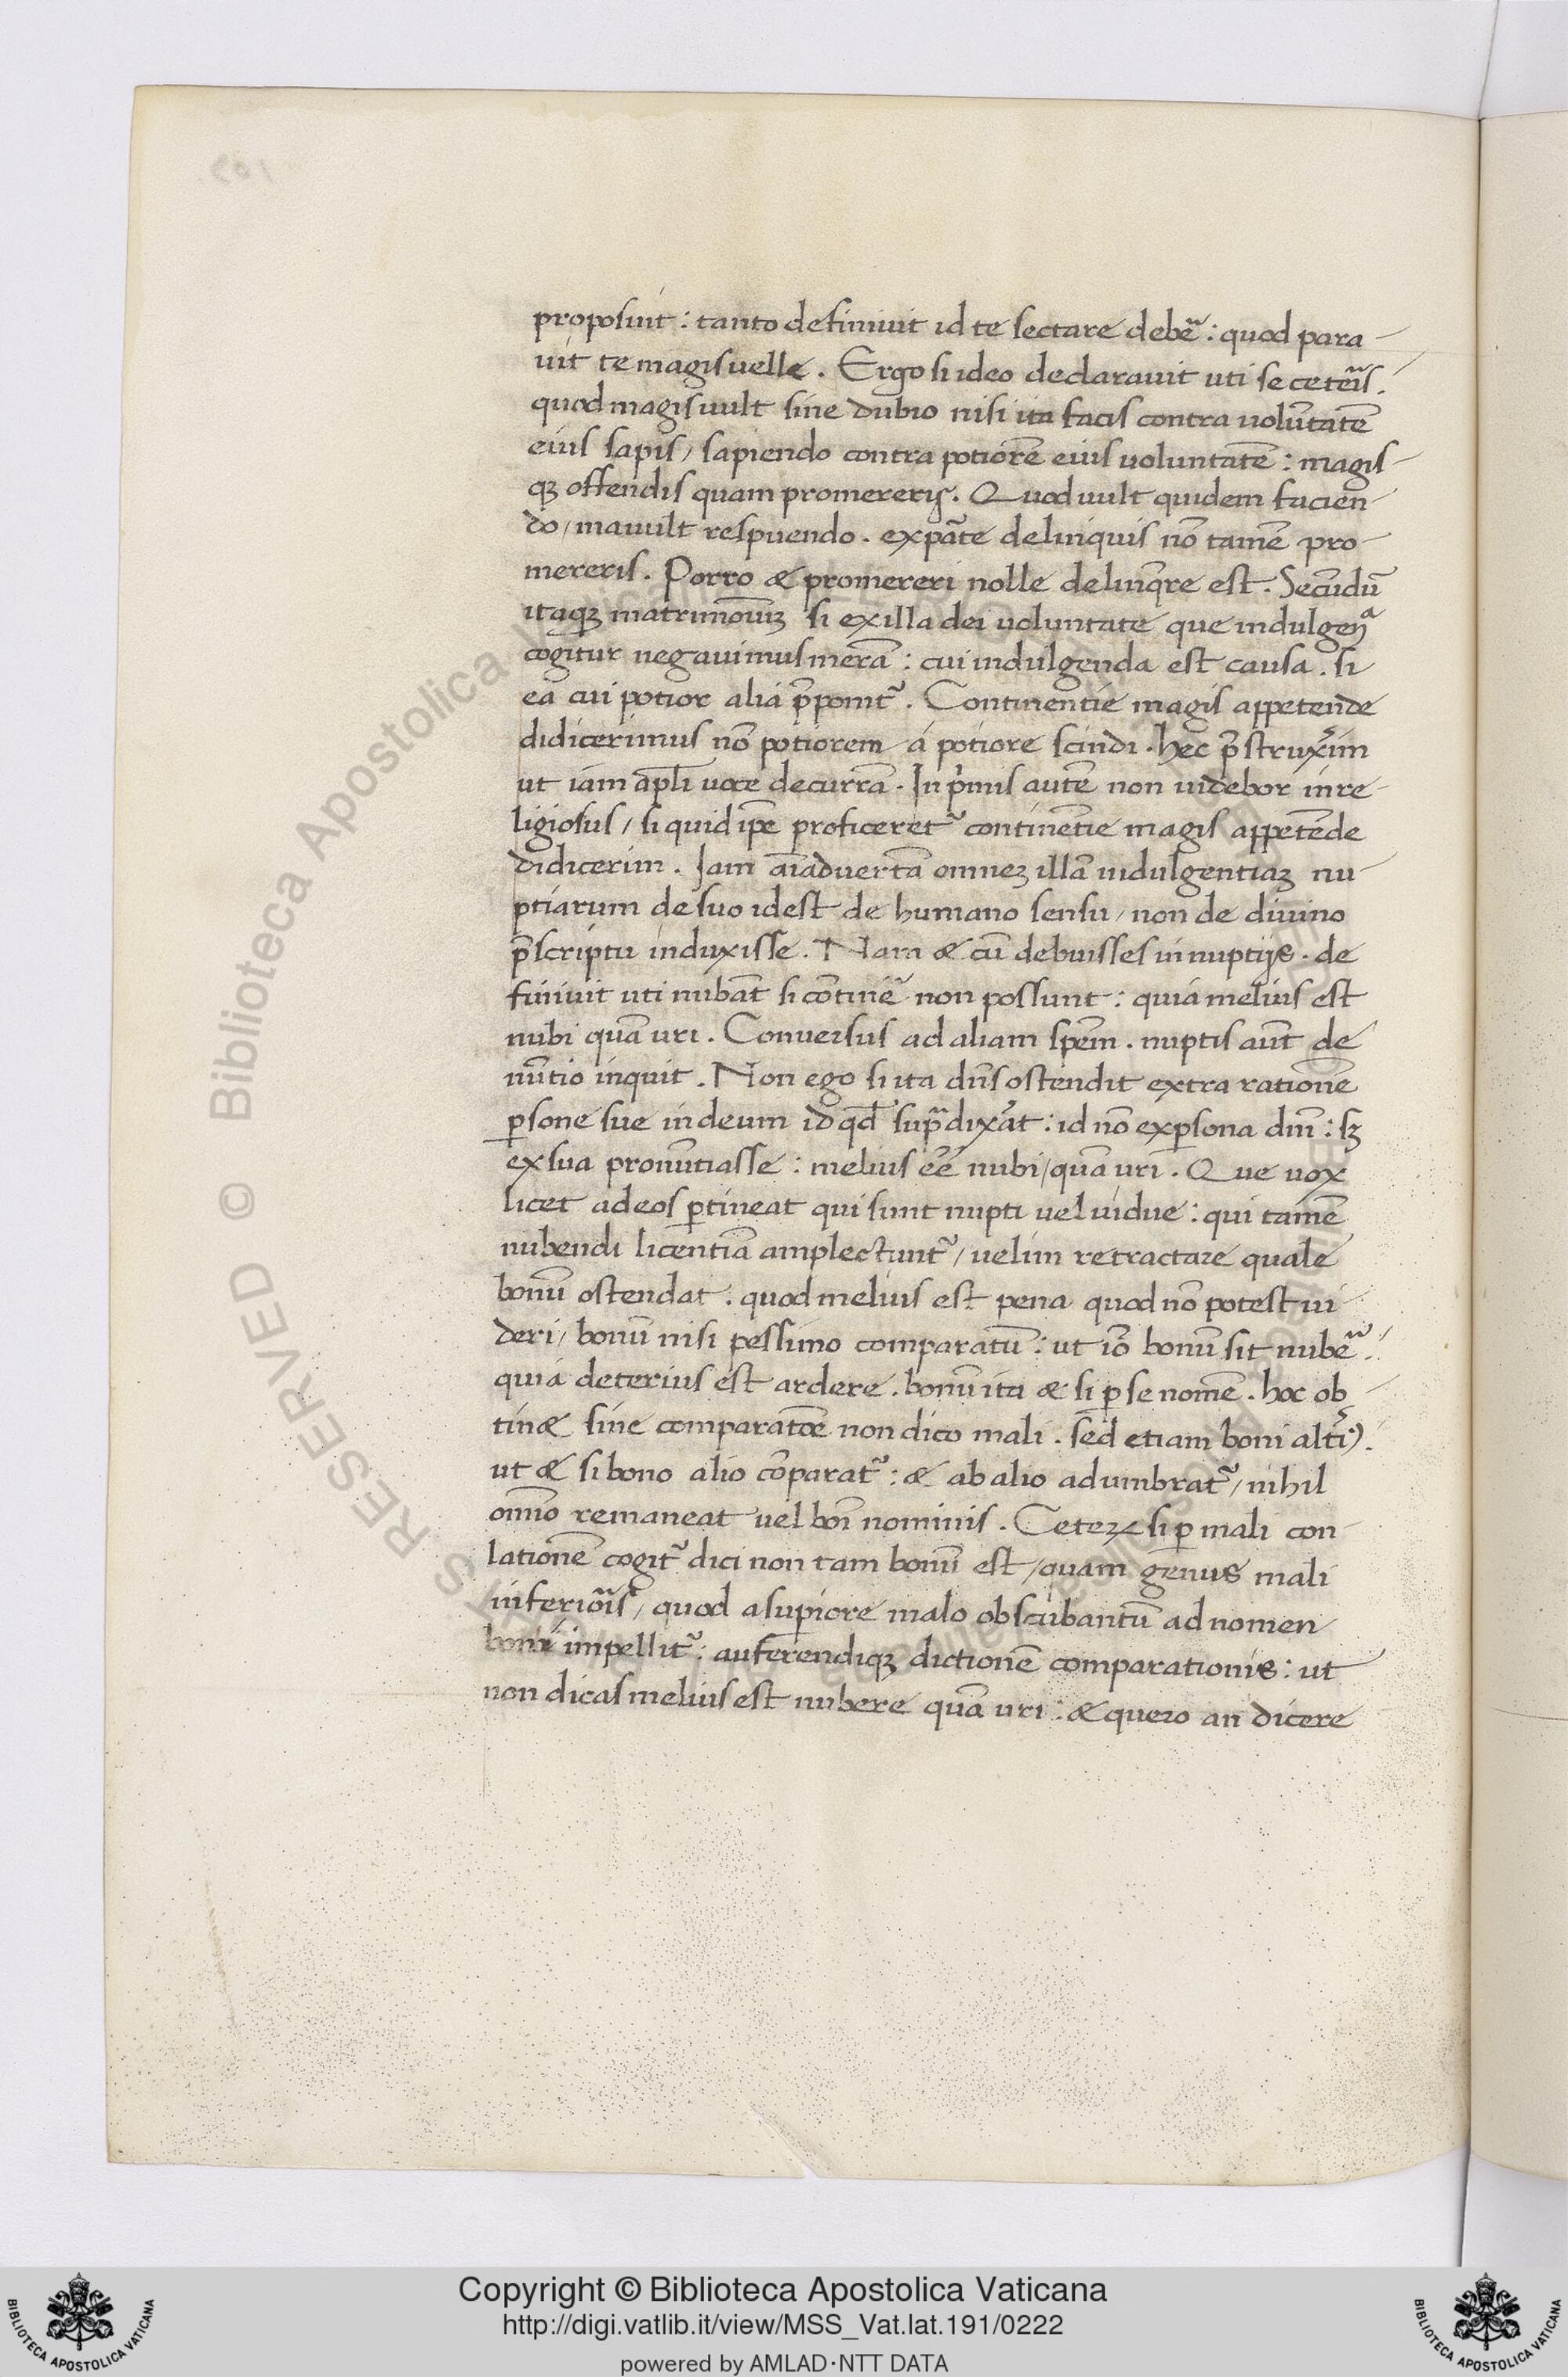 proposuit : tanto definivit id te sectare debẽ : quod para-
vit te magis velle . Ergo si ideo declaravit uti se ceteĩs .
quod magis vult sine dubio nisi ita facis contra volũtatẽ
eius sapis / sapiendo contra potiorẽ eius voluntatẽ : magis-
qꝫ offendis quam promereris . Quod vult quidem facien-
do / mavult respuendo . ex pãte delinquis nõ tamẽ pro-
mereris . Porro & promereri nolle delinq̃re est . Secũdũ
itaqꝫ matrimoniũ si ex illa dei voluntate que indulgenᵃ
cogitur negavimus merã : cui indulgenda est causa . si
ea cui potior alia p̃ponit᷑ . Continentie magis appetende
didicerimus nõ potiorem á potiore scindi . hec p̃struxim᷑
ut iam apl̃i voce decurrã . In p̃mis autẽ non videbor inre-
ligiosus / si quid ip̃e proficeret᷑ continẽtie magis appetẽde
didicerim . Iam aĩadvertã omneꝫ illã indulgentiaꝫ nu-
ptiarum de suo idest de humano sensu / non de divino
p̃scriptu induxisse . Nam & cũ debuisses in nuptijs . de
finivit uti nubãt si cõtinẽ non possunt : quia melius est
nubi quã uri . Conversus ad aliam spẽm . nuptis aũt de
nũtio inquit . Non ego si ita dñs ostendit extra rationẽ
ꝑsone sue in deum id qđ sup̃dixãt : id nõ ex ꝑsona dñi : sꝫ
ex sua pronũtiasse : melius eẽ nubi / quã uri . Que vox
licet ad eos ꝑtineat qui sunt nupti vel vidue : qui tamẽ
nubendi licentiã amplectunt᷑ / velim retractare quale
bonũ ostendat . quod melius est pena quod nõ potest vi
deri / bonũ nisi pessimo comparatũ : ut iõ bonũ sit nubẽ .
quia deterius est ardere . bonũ ita & si ꝑ se nomẽ . hoc ob-
tin& sine comparatõe non dico mali . sed etiam boni altĩ⁹ .
ut & si bono alio cõparat᷑ : & ab alio adumbrat᷑ / nihil
omĩo remaneat vel boñi nominis . Ceteꝝ si ꝑ mali con
lationẽ cogit᷑ dici non tam bonũ est / quam genus mali
inferiõis / quod a suꝑiore malo obscubantũ ad nomen
boni impellit᷑ : auferendiqꝫ dictionẽ comparationis : ut
non dicas melius est nubere quã uri : & quero an dicere
Copyright © Biblioteca Apostolica Vaticana
http://digi.vatlib.it/view/MSS_Vat.lat.191/0222
powered by AMLAD·NTT DATA